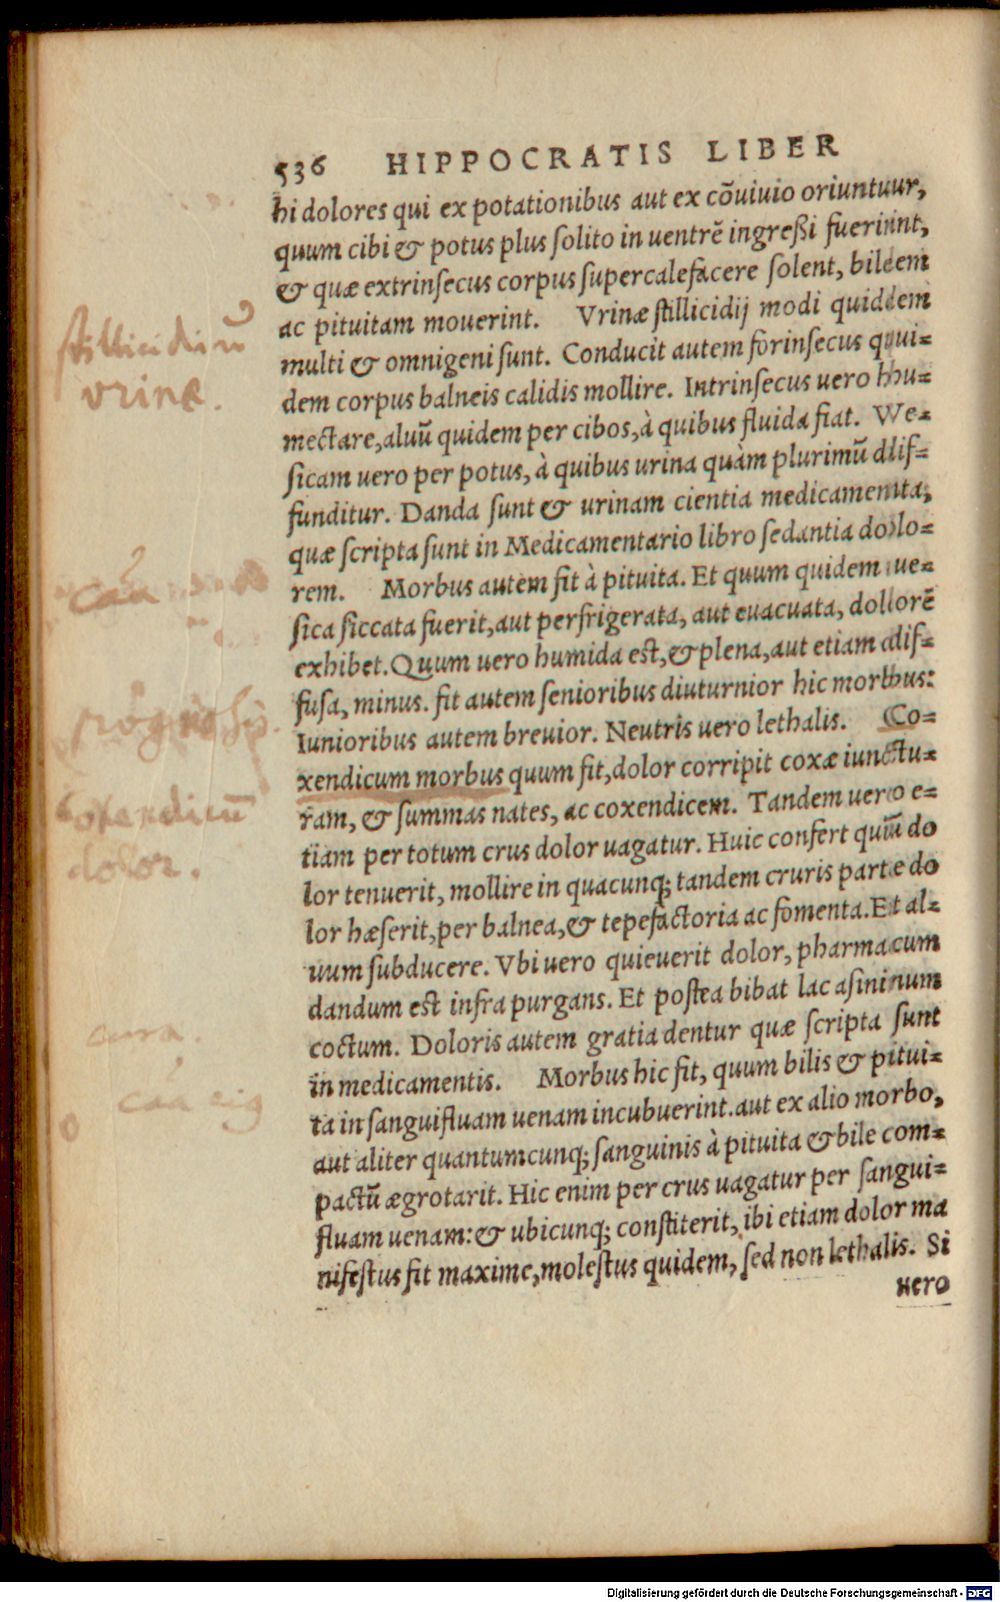 536 HIPPOCRATIS LIBER
hi dolores qui ex potationibus aut ex cõuiuio oriuntuur,
quum cibi & potus plus solito in uentrẽ ingreßi fuerint,
& quæ extrinsecus corpus supercalefacere solent, bilem
ac pituitam mouerint. Vrinæ stillicidij modi quidem
multi & omnigeni sunt. Conducit autem forinsecus qui=
dem corpus balneis calidis mollire. Intrinsecus uero hu=
mectare, aluũ quidem per cibos, à quibus fluida fiat. Ve=
sicam uero per potus, à quibus urina quàm plurimũ dif=
funditur. Danda sunt & urinam cientia medicamenta,
quæ scripta sunt in Medicamentario libro sedantia dolo=
rem. Morbus autem fit à pituita. Et quum quidem ue=
sica siccata fuerit, aut perfrigerata, aut euacuata, dolorẽ
exhibet. Quum uero humida est, & plena, aut etiam dif=
fusa, minus. fit autem senioribus diuturnior hic morbus:
Iunioribus autem breuior. Neutris uero lethalis. Co=
xendicum morbus quum fit, dolor corripit coxæ iunctu=
ram, & summas nates, ac coxendicem. Tandem uero e=
tiam per totum crus dolor uagatur. Huic confert quũ do
lor tenuerit, mollire in quacunq; tandem cruris parte do
lor hæserit, per balnea, & tepefactoria ac fomenta. Et al=
uum subducere. Vbi uero quieuerit dolor, pharmacum
dandum est infra purgans. Et postea bibat lac asininum
coctum. Doloris autem gratia dentur quæ scripta sunt
in medicamentis. Morbus hic fit, quum bilis & pitui=
ta in sanguifluam uenam incubuerint. aut ex alio morbo,
aut aliter quantumcunq; sanguinis à pituita & bile com=
pactũ ægrotarit. Hic enim per crus uagatur per sangui=
fluam uenam: & ubicunq; constiterit, ibi etiam dolor ma
nifestus fit maxime, molestus quidem, sed non lethalis. Si
uero
stillicidiũ
vrinæ.
prognosis.
Coxendicũ
dolor.
cura.
Digitalisierung gefördert durch die Deutsche Forschungsgemeinschaft - DFG